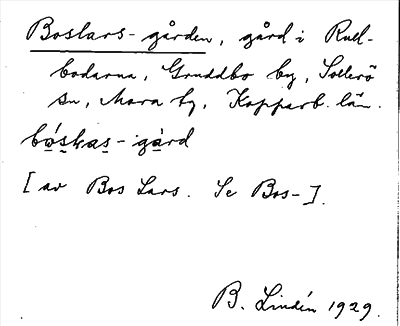 Boslars-gården, gård i Rull-
bodarna, Gruddbo by, Sollerö
sn, Mora tg, Kopparb. län.
bó̤s̤ka̤s̤-ga̤rd
[av Bos Lars. Se Bos-].
B. Lindén 1929.